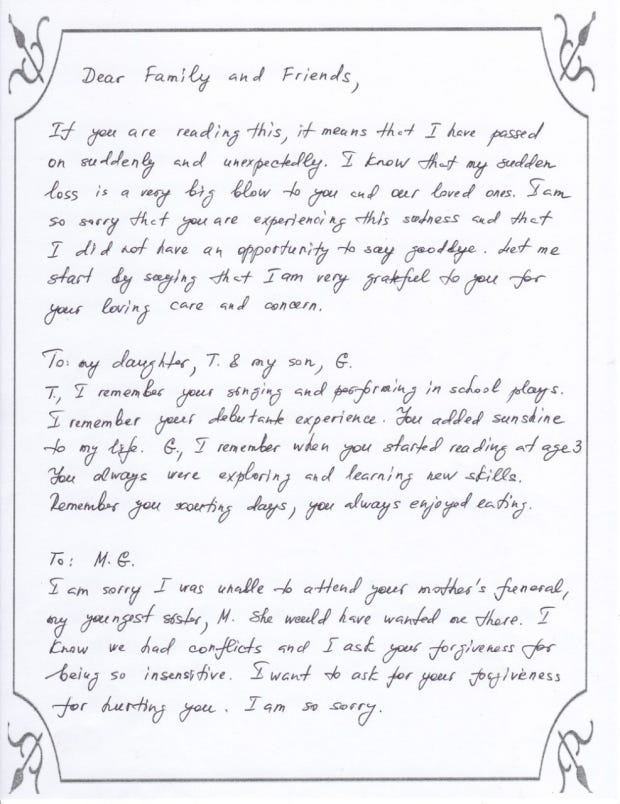 Dear Family and Friends,
If you are reading this, it means that I have passed
on suddenly and unexpectedly. I know that my sudden
loss is a very big blow to you and our loved ones. I am
so sorry that you are experiencing this sadness and that
I did not have an opportunity to say goodbye. Let me
start by saying that I am very grateful to you for
your loving care and concern.
To: my daughter, T. & my son, G.
T., I remember your singing and performing in school plays.
I remember your debutante experience. You added sunshine
to my life. G., I remember when you started reading at age 3
You always were exploring and learning new skills.
Remember you scouting days, you always enjoyed eating.
To: M. G.
I am sorry I was unable to attend your mother's funeral,
my youngest sister, M. She would have wanted me there. I
know we had conflicts and I ask your forgiveness for
being so insensitive. I want to ask for your forgiveness
for hurting you. I am so sorry.